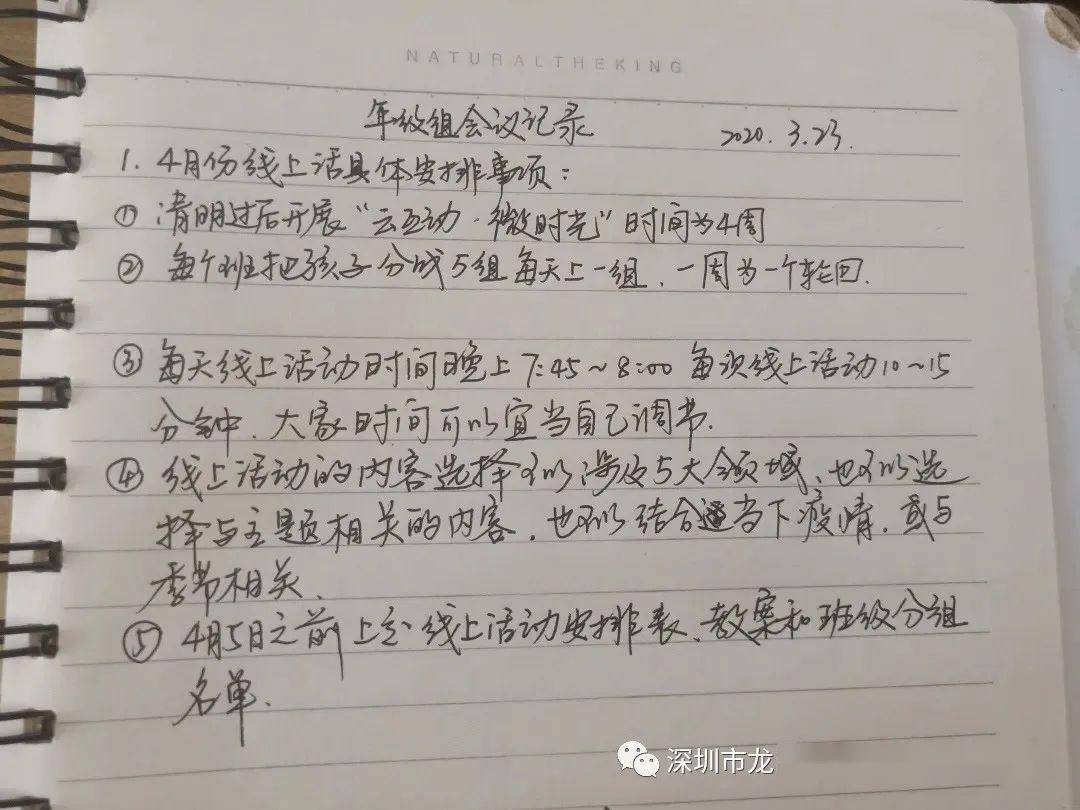 NATURALTHEKING
年级组会议记录 2020.3.23.
1.4月份线上活具体安排事项：
① 清明过后开展“云互动·微时光”时间为4周
② 每个班把孩子分成5组每天上一组、一周为一个轮回.
③ 每天线上活动时间晚上7:45～8:00 每次线上活动10～15
分钟、大家时间可以宜当自己调节.
④ 线上活动的内容选择可以涉及5大领域、也可以选
择与主题相关的内容，也可以结合当下疫情，或与
季节相关、
⑤ 4月5日之前上交线上活动安排表、教案和班级分组
名单、
深圳市龙